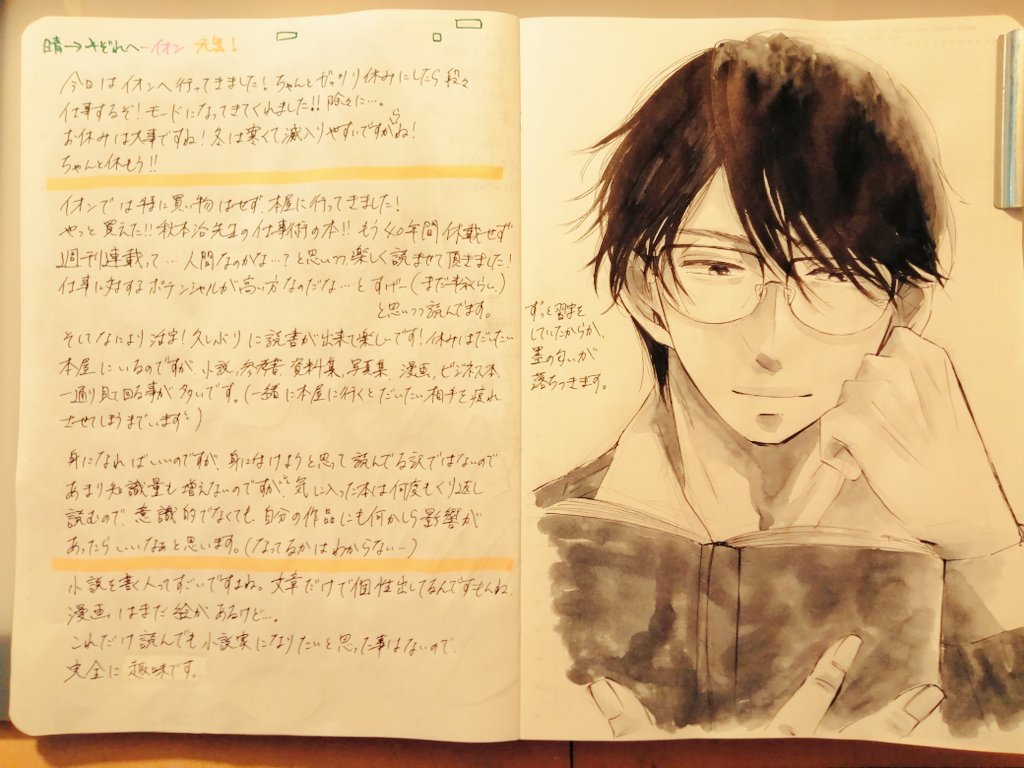 晴→みぞれへ…イオン 元気！
今日はイオンへ行ってきました！ちゃんとガッツリ休みにしたら段々
仕事するぞ！モードになってきてくれました!!除々に…。
お休みは大事ですね！冬は寒くて滅入りやすいですからね！
ちゃんと休もう!!
イオンでは特に買い物はせず、本屋に行ってきました！
やっと買えた!!秋本治先生の仕事術の本!!もう40年間休載せず
週刊連載って…人間なのかな…？と思いつつ楽しく読ませて頂きました！
仕事に対するポテンシャルが高い方なのだな…とすげー(まだ半分くらい)
と思いつつ読んでます。
そしてなにより活字！久しぶりに読書が出来て楽しいです！休みはだいたい
本屋にいるのですが、小説、参考書、資料集、写真集、漫画、ビジネス本、
一通り見て回る事が多いです。(一緒に本屋に行くとだいたい相手を疲れ
させてしまうまでいます)
身になればいいのですが、身に付けようと思って読んでる訳ではないので
あまり知識量も増えないのですが、気に入った本は何度もくり返し
読むので、意識的でなくても自分の作品にも何かしら影響が
あったらいいなぁと思います。(なってるかはわからない…)
小説を書く人ってすごいですよね。文章だけで個性出してるんですもんね。
漫画はまだ絵があるけど…。
これだけ読んでも小説家になりたいと思った事はないので、
完全に趣味です。
ずっと習字を
していたからか、
墨の匂いが
落ちつきます。